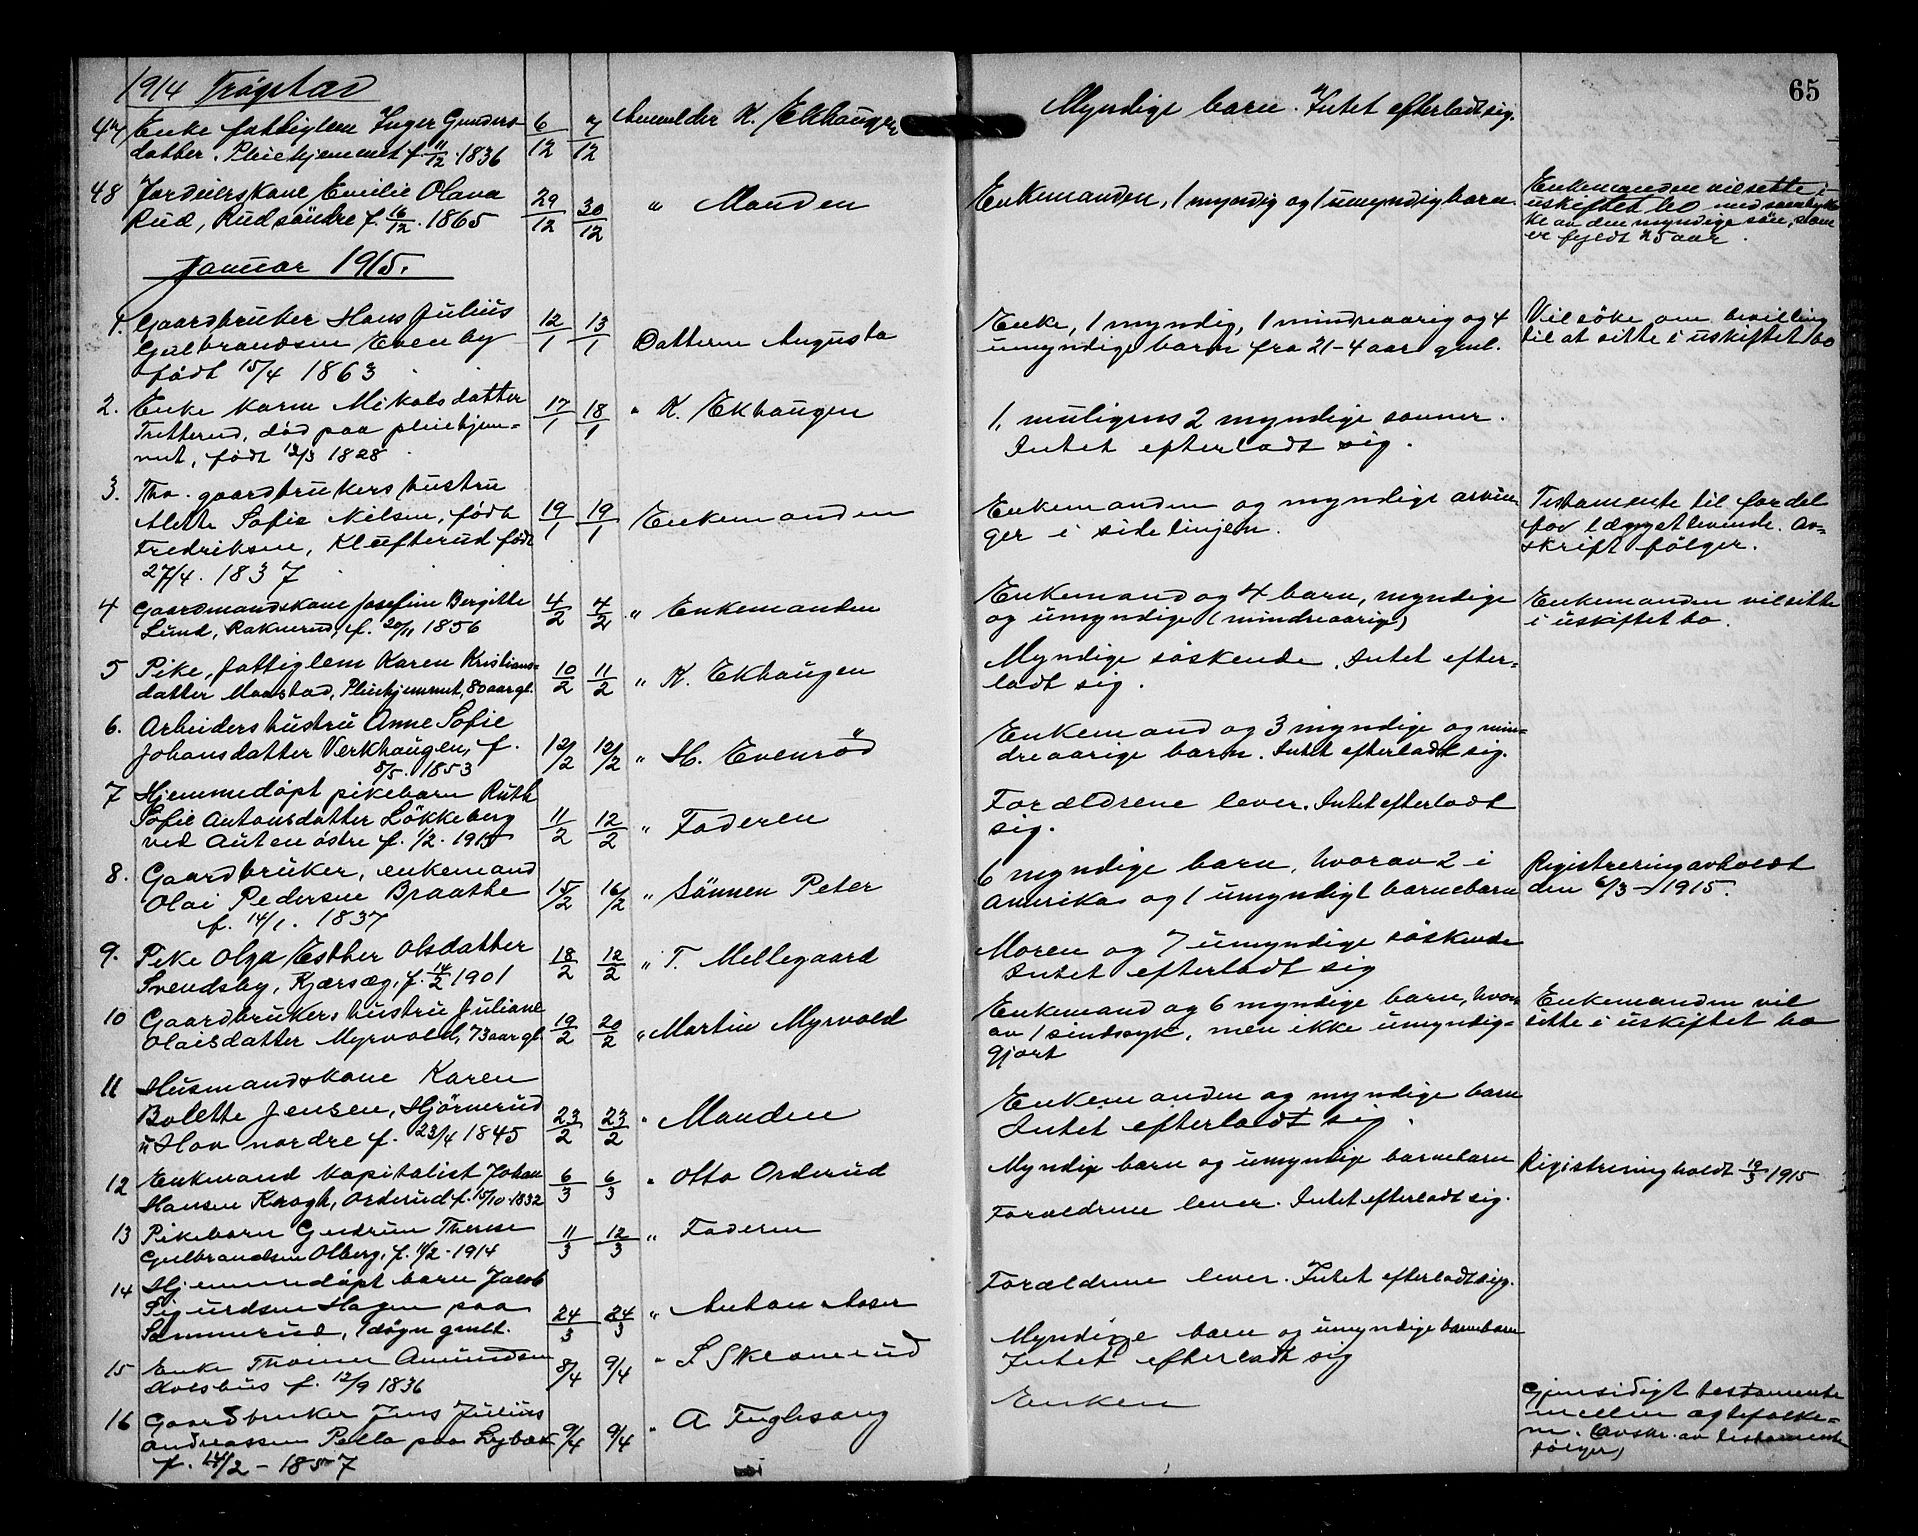 65
1914 Trøgstad
47, Enke fattiglem Inger Gunders- 6/12 7/12 Anmelder K. Ekhaugen Myndige barn. Intet efterladt sig.
datter. Pleiehjemmet f. 11/12. 1836
48 Jordeierskone Emilie Olava 29/12 30/12 " Manden Enkemanden, 1 myndig og 1 umyndig barn. Enkemanden vil sitte i
Rud, Rud söndre f. 16/12. 1865 uskiftet bo med samtyk-
ke av den myndige sön, som
er fyldt 25 aar.
Januar 1915.
1. Gaardbruker Hans Julius 12/1 13/1 Datteren Augusta Enke, 1 myndig, 1 mindreaarig og 4 Vil söke om bevilling
Gulbrandsen Evenby umyndige barn fra 21-4 aar gml. til at sitte i uskiftet bo
født 15/4 1863
2. Enke Karen Mikalsdatter 17/1 18/1 " K. Ekhaugen 1, muligens 2 myndige sønner.
Tretterud, död paa pleiehjem- Intet efterladt sig.
met, født 12/3 1828
3. Fhv. gaardbrukers hustru 19/1 19/1 Enkemanden Enkemanden og myndige arvin- Testamente til fordel
Alette Sofie Nilsen, født ger i sidelinjen. for længstlevende. Av-
Fredriksen, Klufterud født skrift følger.
27/4. 1837
4 Gaardmandskone Josefine Bergitte 4/2 4/2 " Enkemanden Enkemand og 4 barn, myndige Enkemanden vil sitte
Lund, Raknerud, f. 20/11 1856 og umyndige (mindreaarige) i uskiftet bo.
5 Pike, fattiglem Karen Kristians- 10/2 11/2 " K. Ekhaugen Myndige søskende. Intet efter-
datter Monstad, Pleiehjemmet, 80 aar gl. ladt sig.
6. Arbeiders hustru Anne Sofie 12/2 12/2 " H. Evenrød Enkemand og 3 myndige og min-
Johansdatter Verkhaugen, f. dreaarige barn. Intet efterladt sig.
8/5. 1853
7 Hjemmedøpt pikebarn Ruth 11/2 12/2 " Faderen Forældrene lever. Intet efterladt
Sofie Antonsdatter Løkkeberg sig.
ved Auten østre f. 1/2. 1915
8. Gaardbruker, enkemand 15/2 16/2 " Sönnen Peter 6 myndige barn, hvorav 2 i Registrering avholdt
Olai Pedersen Braathe Amerika og 1 umyndigt barnebarn den 6/3 - 1915.
f. 14/1. 1837
9. Pike Olga Esther Olsdatter 18/2 12/2 " T. Mellegaard Moren og 7 umyndige søskende
Svendsby, Kjærsæg, f. 14/2 1901 Intet efterladt sig
10 Gaardbrukers hustru Juliane 19/2 20/2 " Martin Myrvold Enkemand og 6 myndige barn, hvor- Enkemanden vil
Olaisdatter Myrvold, 73 aar gl. av 1 sindssyk, men ikke umyndig- sitte i uskiftet bo
gjort
11 Husmandskone Karen 23/2 23/2 " Manden Enkemanden og myndige barn
Bolette Jensen, Hjörnerud Intet efterladt sig.
u Hov nordre f. 23/4 1845
12 Enkemand kapitalist Johan 6/3 6/3 " Otto Orderud Myndige barn og umyndige barnebarn Registrering holdt 19/3 1915
Hansen Krogh, Orderud f. 15/10. 1832
13 Pikebarn Gudrun Therese 11/3 12/3 " Faderen Forældrene lever. Intet efterladt sig.
Gulbrandsen Olberg, f. 11/2. 1914
14 Hjemmedøpt barn Jacob 24/3 24/3 " Anton Aaser Forældrene lever. Intet efterladt sig.
Sigurdsen Hagen paa
Sammerud, 1 døgn gmlt.
15 Enke Thorine Amundsen 8/4 9/4 " Myndige barn og umyndige barnebarn
Kolsbus f. 12/9 1836 Intet efterladt sig
16 Gaardbruker Jens Julius 9/4 9/4 " A Fuglesang Enken Gjensidigt testamente
Andreassen Pella paa f. 14/2 - 1857 mellem ægtefolke-
ne. (Avskr. av testamente
følger)